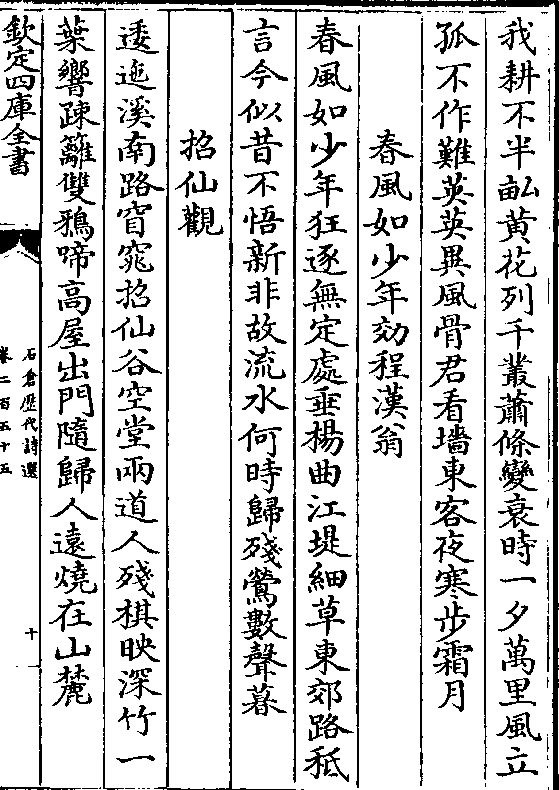 我耕不半畝黄花列千叢蕭條變衰時一夕萬里風立
孤不作難英英異風骨君看墻東客夜寒步霜月
春風如少年効程漢翁
春風如少年狂逐無定處垂楊曲江堤細草東郊路秖
言今似昔不悟新非故流水何時歸殘鶯數聲暮
招仙觀
逶迤溪南路窅窕招仙谷空堂兩道人殘棋映深竹一
葉響疎籬雙鴉啼高屋出門隨歸人遠燒在山麓
欽定四庫全書
石倉歷代詩選
卷二百五十五
十一